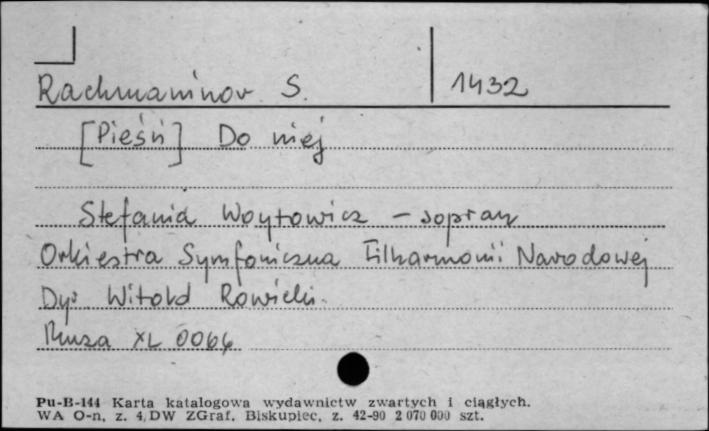 Rachmaninov S. 1432
[Pieśń] Do niej
Stefania Woytowicz – sopran
Orkiestra Symfoniczna Filharmonii Narodowej
Dyr. Witold Rowicki.
Muza XL 0064
Pu-B-144 Karta katalogowa wydawnictw zwartych i ciągłych.
WA O-n, z. 4, DW ZGraf. Biskupiec, z. 42-90 2 070 000 szt.